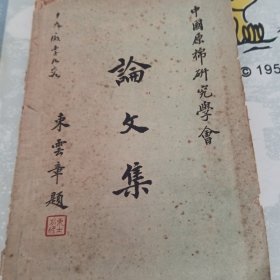 中國原棉研究學會
論文集
束雲章題
© 195